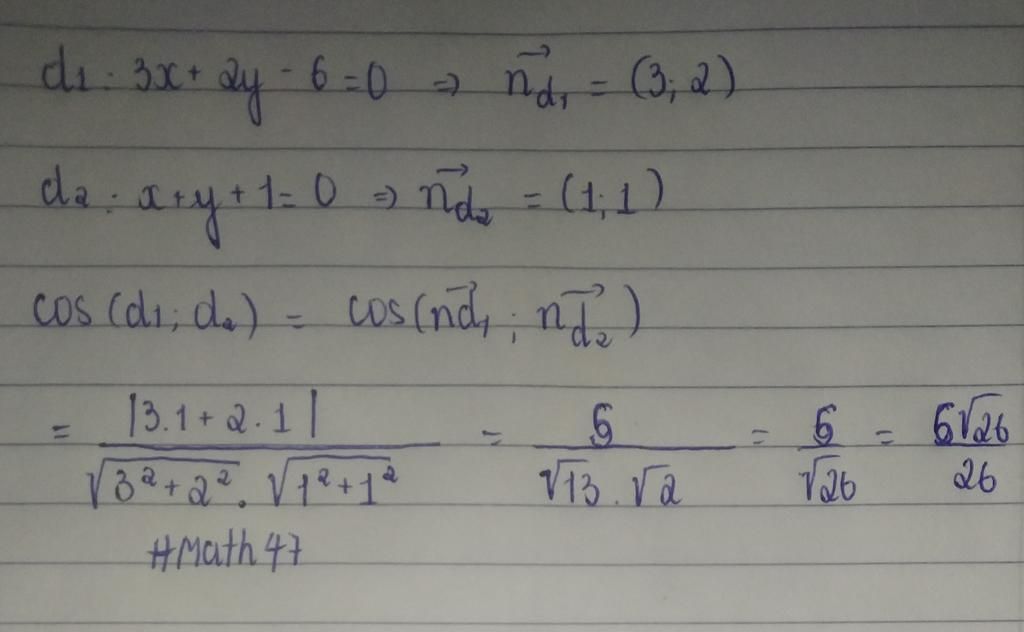 d1 : 3x + 2y - 6 = 0 ⇒ \vec{n_{d_1}} = (3; 2)
d2 : x + y + 1 = 0 ⇒ \vec{n_{d_2}} = (1; 1)
cos(d1; d2) = cos(\vec{nd_1} ; \vec{n_{d_2}})
= |3.1 + 2.1| / √(3² + 2²) . √(1² + 1²) = 5 / √13 . √2 = 5 / √26 = 5√26 / 26
#Math 47